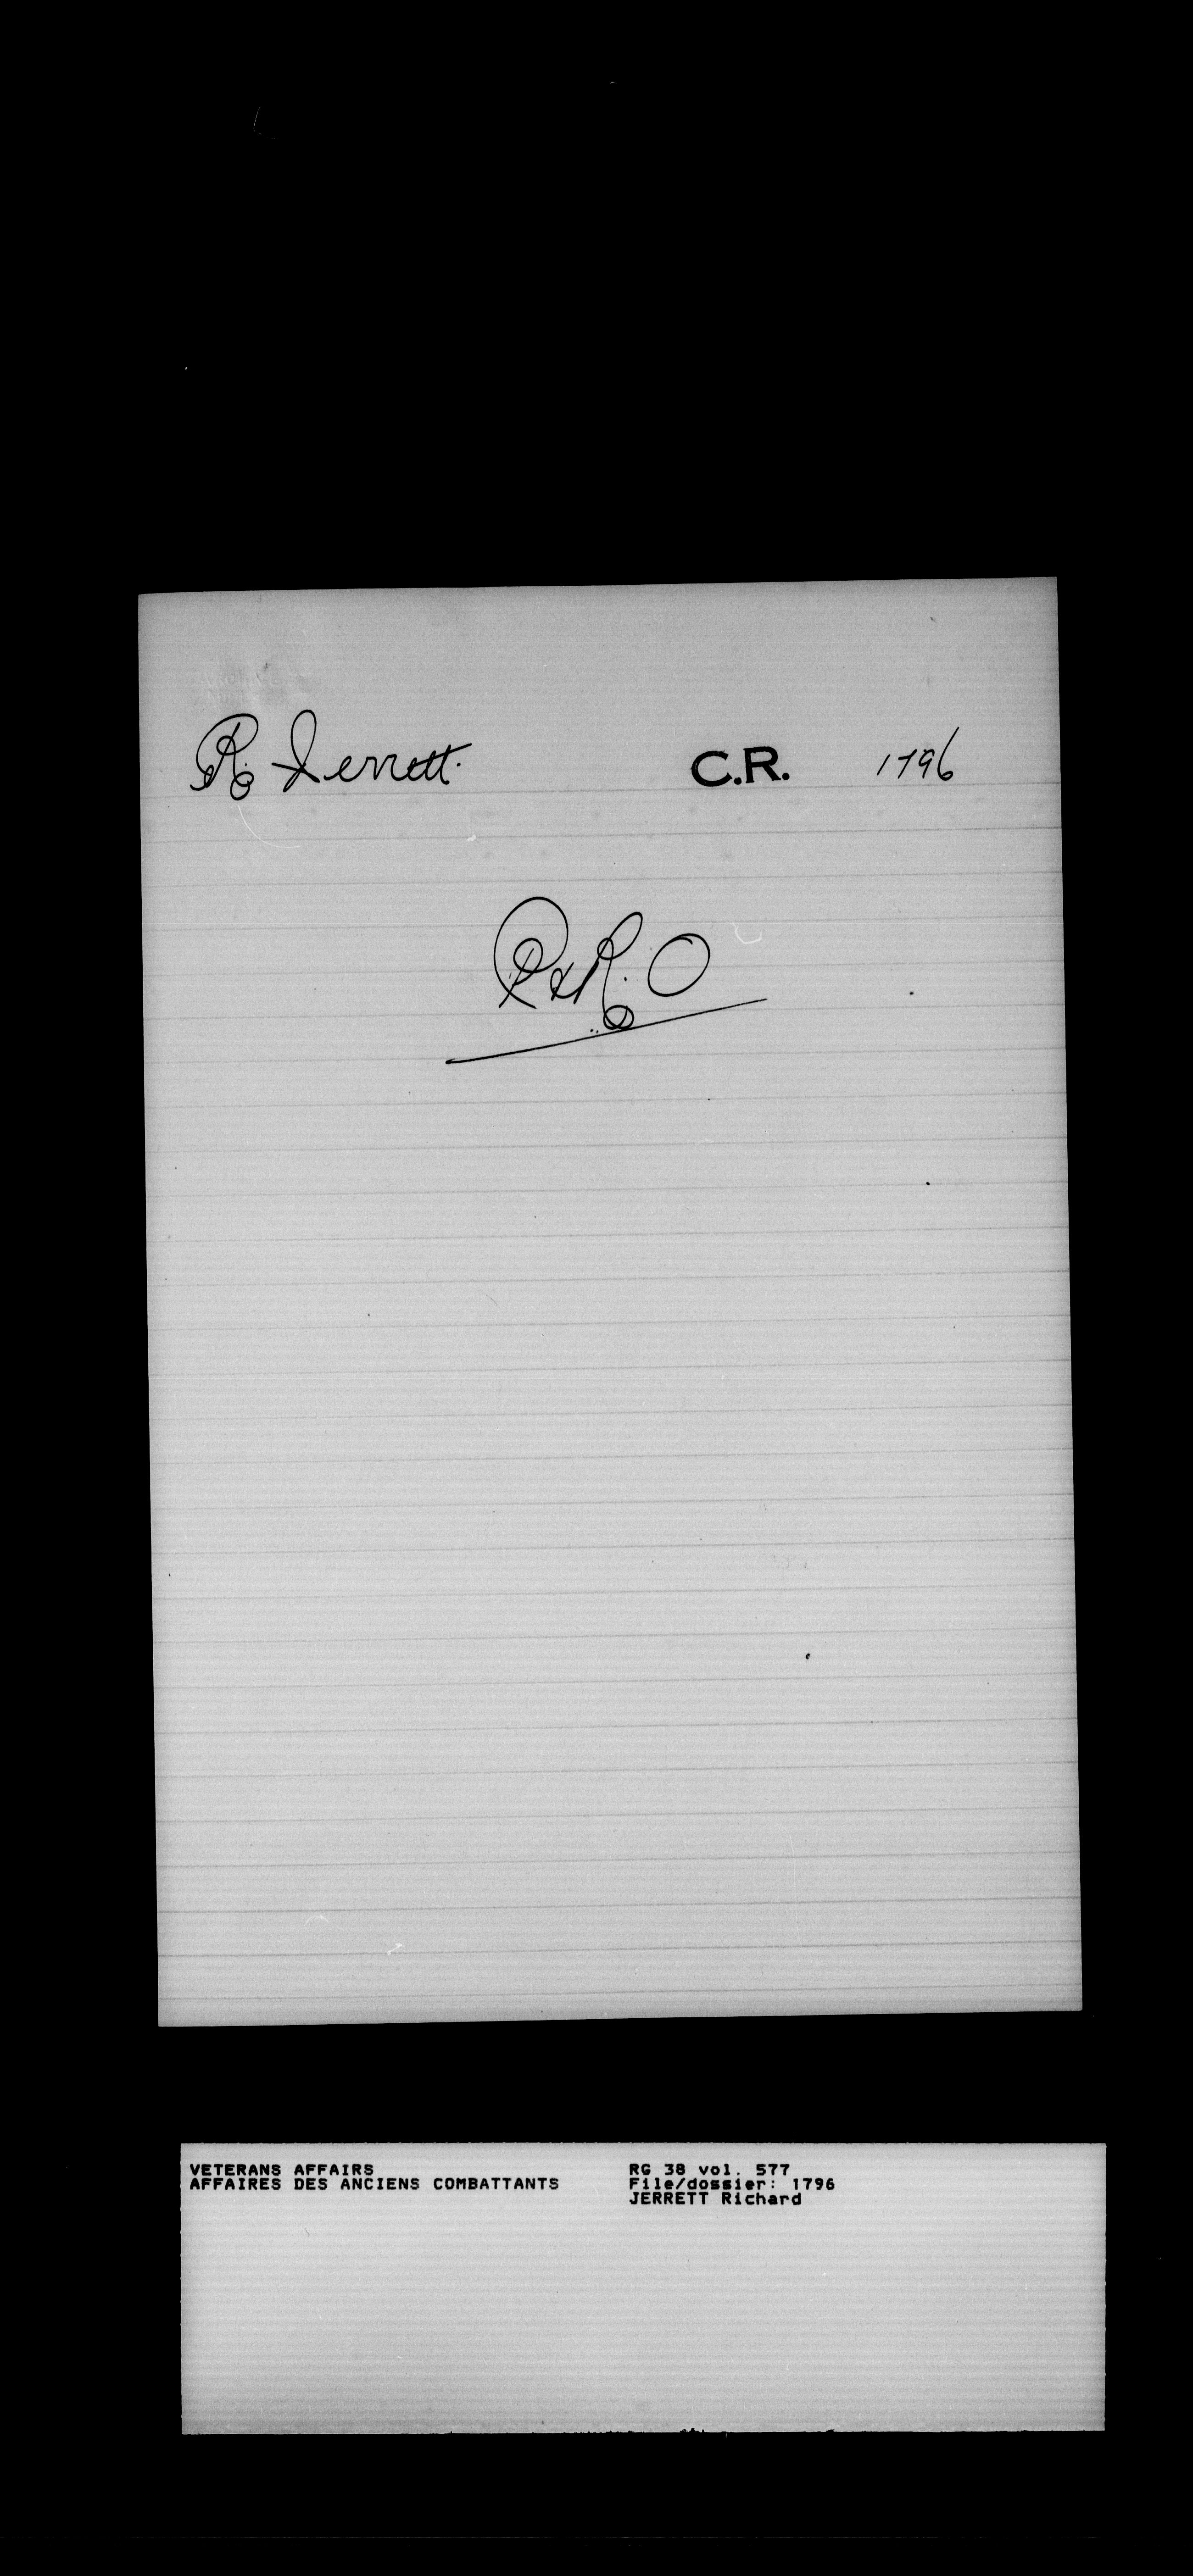 R. Jerrett. C.R. 1796
P & R. O
VETERANS AFFAIRS
AFFAIRES DES ANCIENS COMBATTANTS
RG 38 vol. 577
File/dossier: 1796
JERRETT Richard